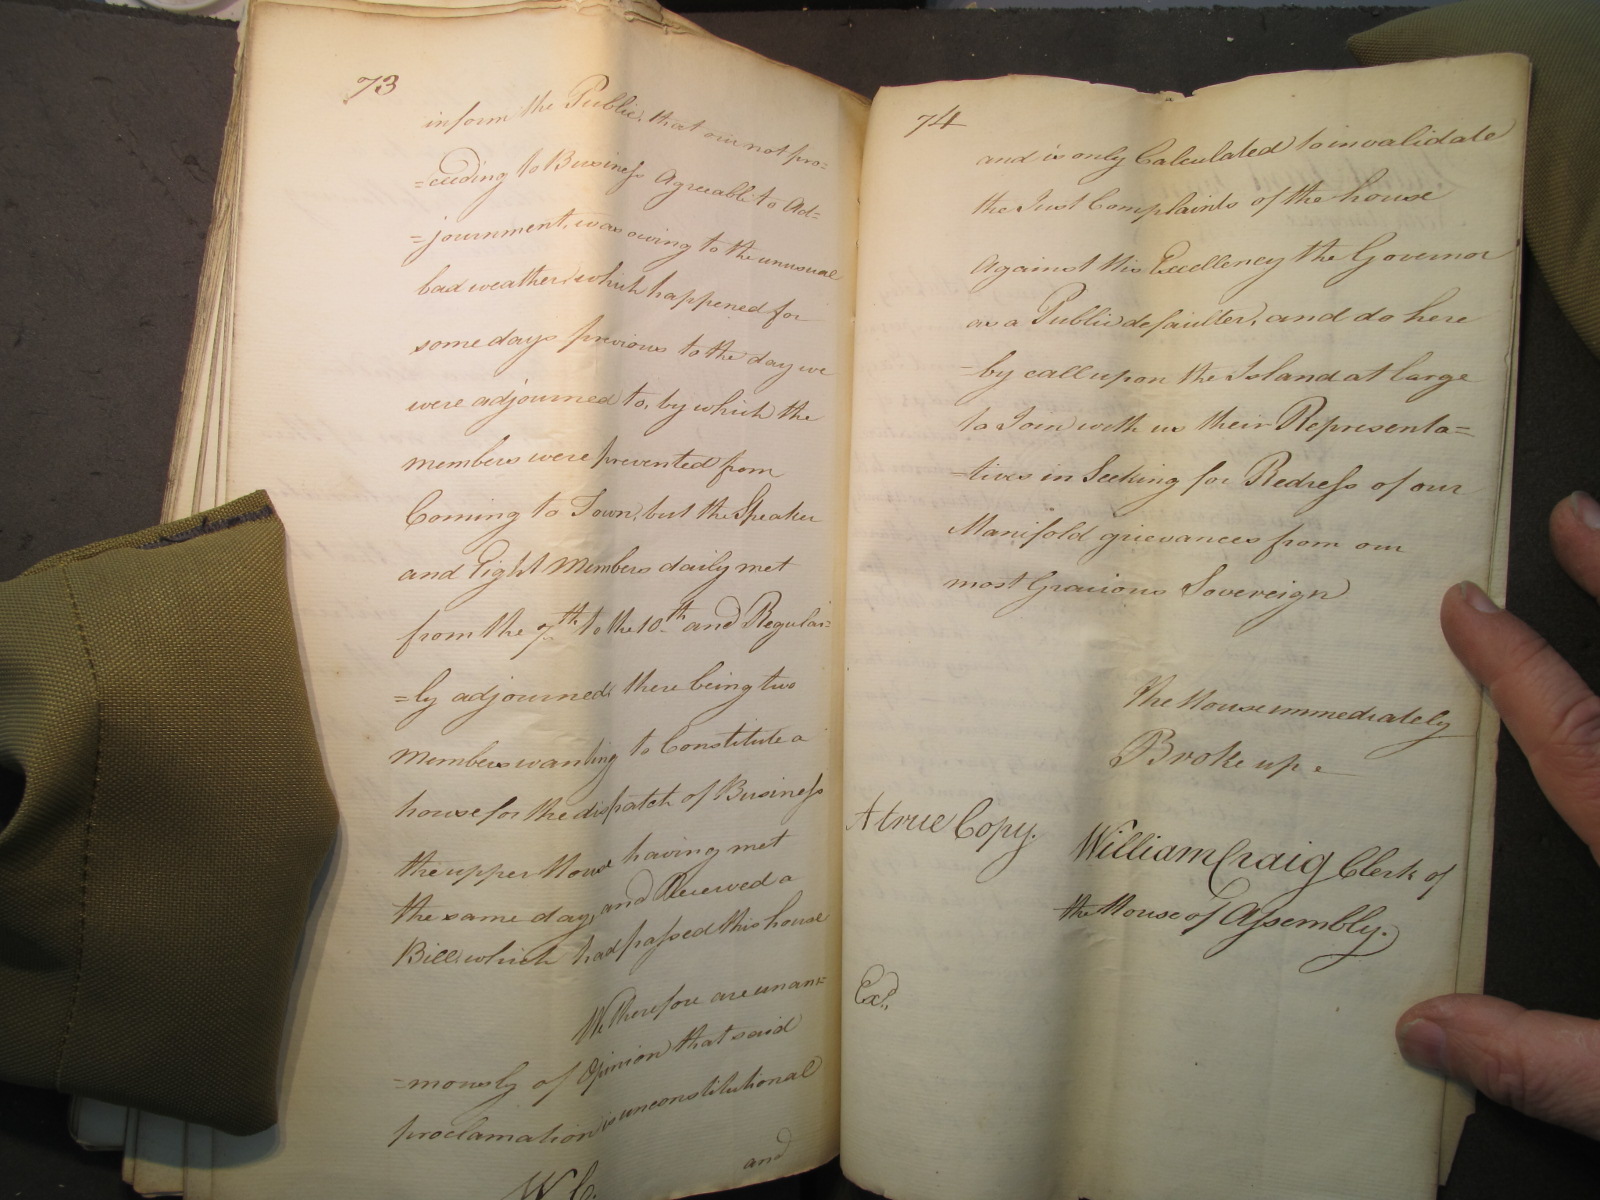 73
inform the Public, that our not pro=
=ceeding to Business Agreeable to Ad=
=journment, was owing to the unusual
bad weather, which happened for
some days previous to the day we
were adjourned to, by which the
members were prevented from
Coming to Town, but the Speaker
and Eight Members daily met
from the 7th to the 10th and Regular=
=ly adjourned, there being two
Members wanting to Constitute a
house for the dispatch of Business
the upper House having met
the same day, and Received a
Bill which had passed this house
We therefore are unani=
=mously of Opinion that said
proclamation is unconstitutional
W C.
and
74
and is only Calculated to invalidate
the Just Complaints of the house
Against His Excellency the Governor
as a Public defaulter, and do here
=by call upon the Island at large
to Join with us their Representa=
=tives in Seeking for Redress of our
Manifold grievances from our
most Gracious Sovereign
The House immediately
Broke up.
A true Copy.
William Craig Clerk of
the House of Assembly.
Exd.